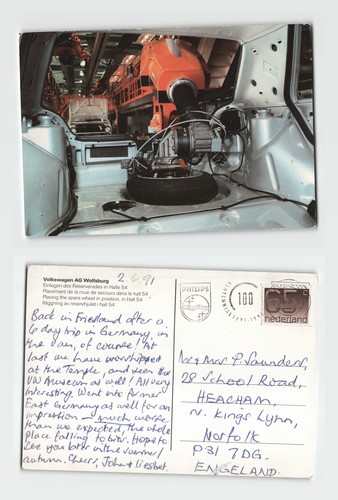 Volkswagen AG Wolfsburg
Einlegen des Reserverades in Halle 54
Placement de la roue de secours dans le hall 54
Placing the spare wheel in position, in Hall 54
Ilaggning av reservhjulet i hall 54
2.6.91
Back in Friesland after a
6 day trip in Germany, in
the van, of course! At
last we have worshipped
at the Temple, and seen the
VW Museum as well! All very
interesting. Went into former
East Germany as well for an
impression - much worse
than we expected, the whole
place falling to bits. Hope to
see you later in the summer/
autumn. Cheers, John & Liesbet.
PHILIPS
100
nederland
Mr + Mrs P. Saunders,
28 School Road,
HEACHAM,
Nr. Kings Lynn,
Norfolk
P31 7DG.
ENGELAND.